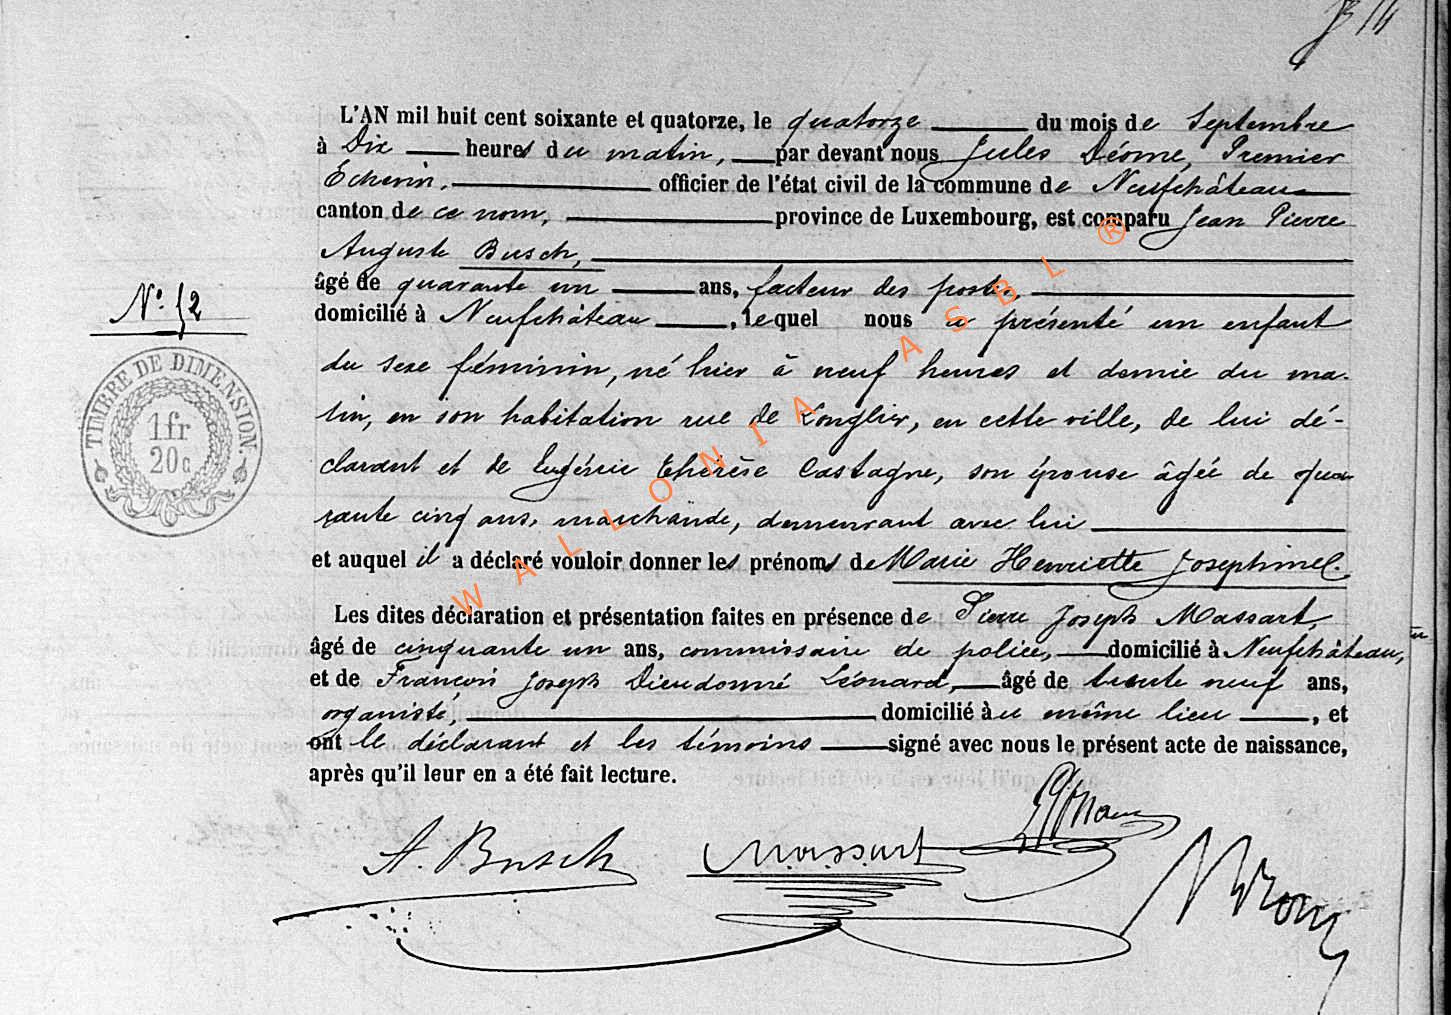 L'AN mil huit cent soixante et quatorze, le quatorze du mois de Septembre
à Dix heures du matin, par devant nous Jules Déome, Premier
Echevin, officier de l'état civil de la commune de Neufchâteau
canton de ce nom, province de Luxembourg, est comparu Jean Pierre
Auguste Busch,
âgé de quarante un ans, facteur des postes,
N° 52
domicilié à Neufchâteau, lequel nous a présenté un enfant
du sexe féminin, né hier à neuf heures et demie du ma-
tin, en son habitation rue de Longlier, en cette ville, de lui dé-
clarant et de Eugénie Thérèse Castagne, son épouse âgée de qua
rante cinq ans, marchande, demeurant avec lui
TIMBRE DE DIMENSION.
1fr
20c
et auquel il a déclaré vouloir donner les prénoms de Marie Henriette Josephine
Les dites déclaration et présentation faites en présence de Pierre Joseph Massart,
âgé de cinquante un ans, commissaire de police, domicilié à Neufchâteau,
et de François Joseph Dieudonné Léonard, âgé de trente neuf ans,
organiste, domicilié au même lieu, et
ont le déclarant et les témoins signé avec nous le présent acte de naissance,
après qu'il leur en a été fait lecture.
A. Busch Massart
WALLONIA ASBL ®